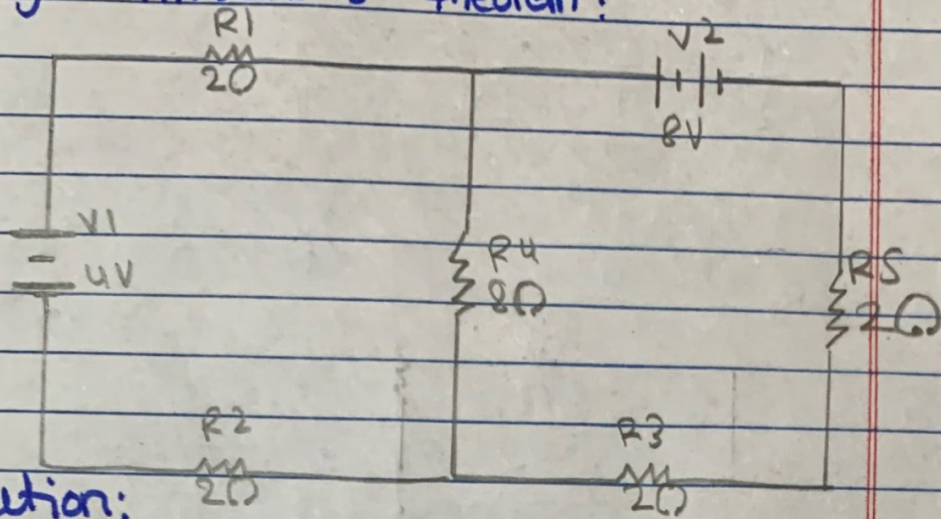 R1
2Ω
V2
8V
V1
4V
R4
8Ω
R5
2Ω
R2
2Ω
R3
2Ω
ution: